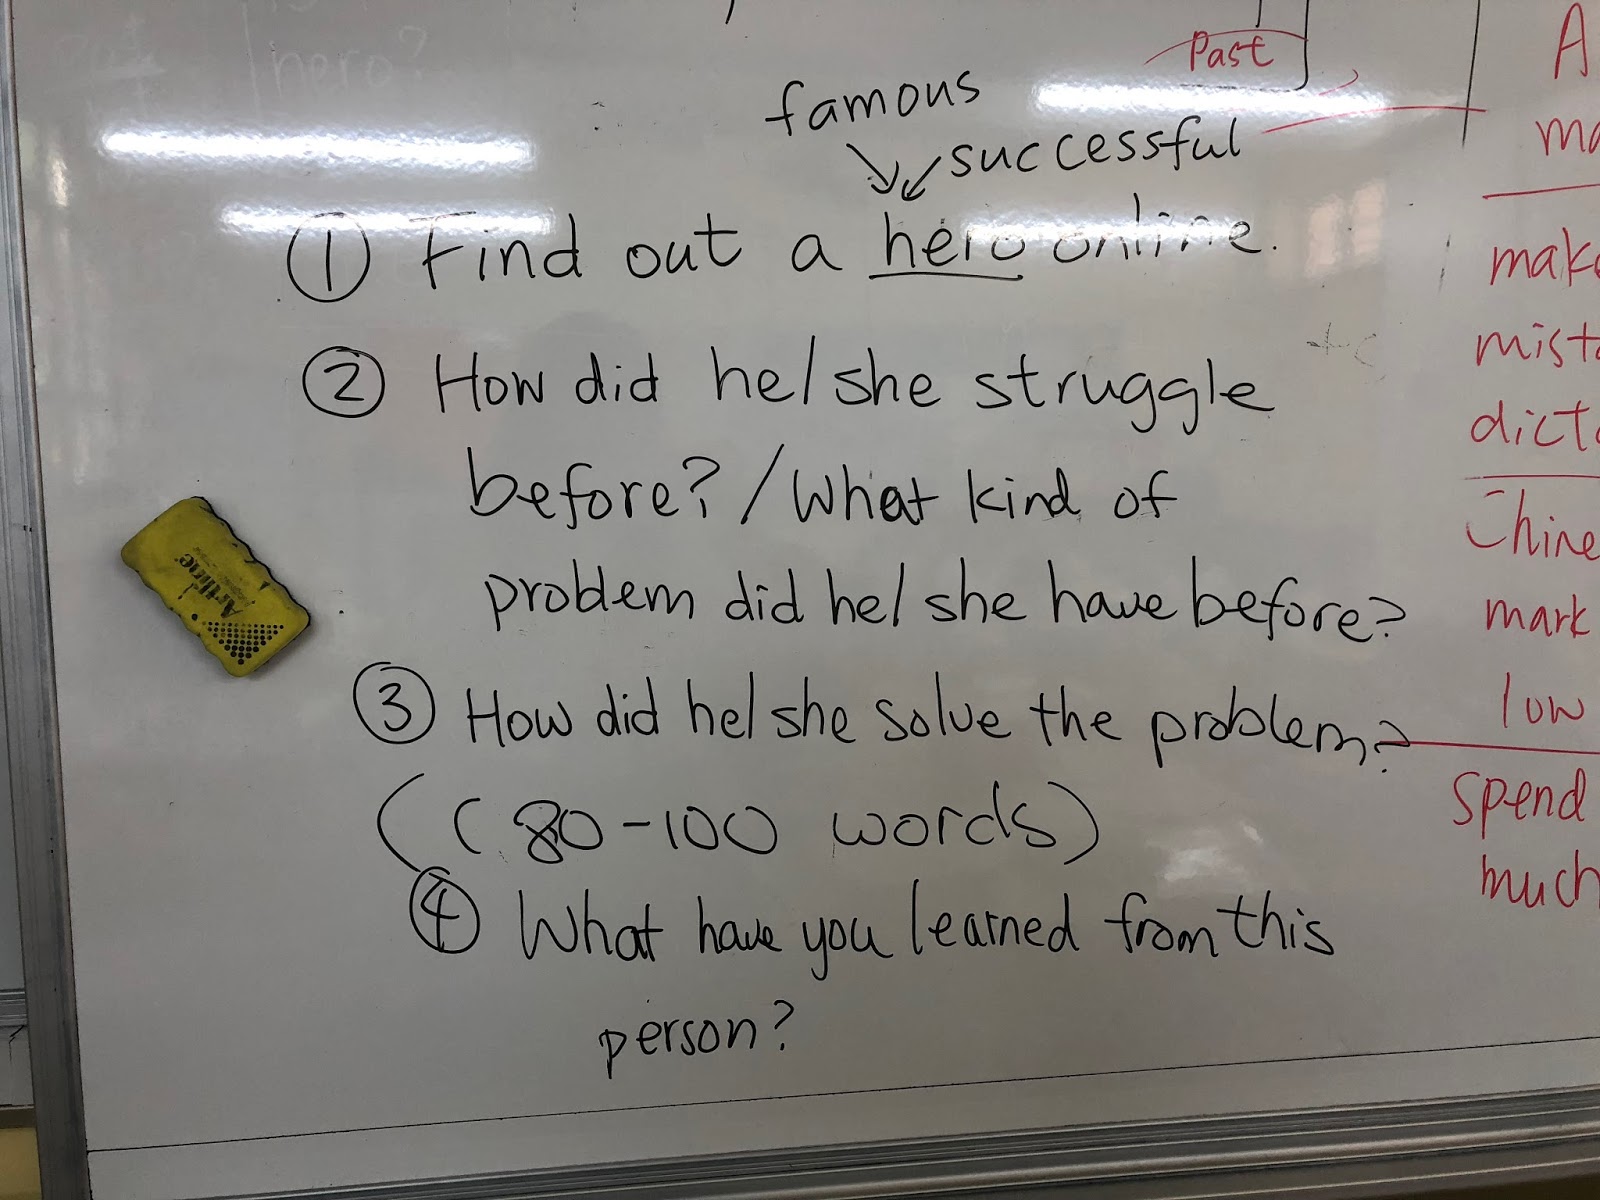 hero?
Past
famous
successful
① Find out a hero online.
② How did he/she struggle
before? / What kind of
problem did he/she have before?
③ How did he/she solve the problem?
((80-100 words)
④ What have you learned from this
person?
Artline
A
ma
make
mist
dict
Chine
mark
low
spend
much